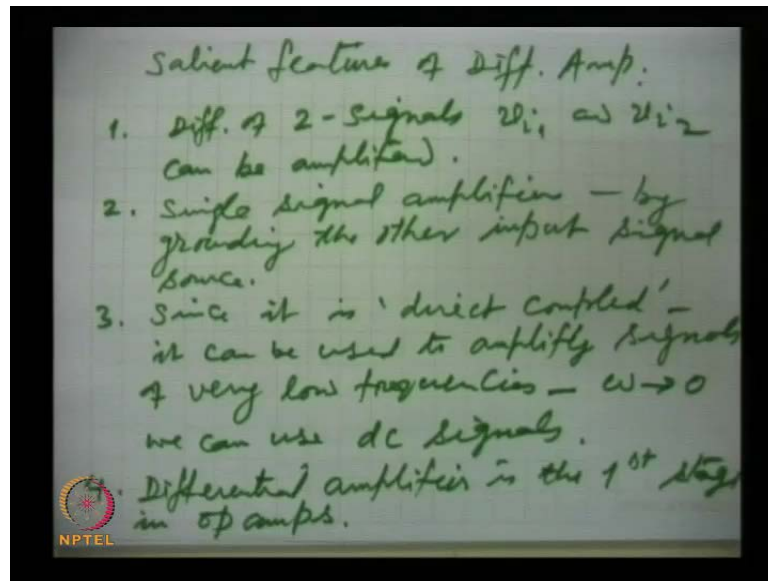 Salient features of Diff. Amp:
1. Diff. of 2-signals vi1 and vi2
can be amplified.
2. Single signal amplifier – by
grounding the other input signal
source.
3. Since it is 'direct coupled' –
it can be used to amplify signals
of very low frequencies – ω→0
we can use dc signals.
4. Differential amplifier is the 1st stage
in op amps.
NPTEL